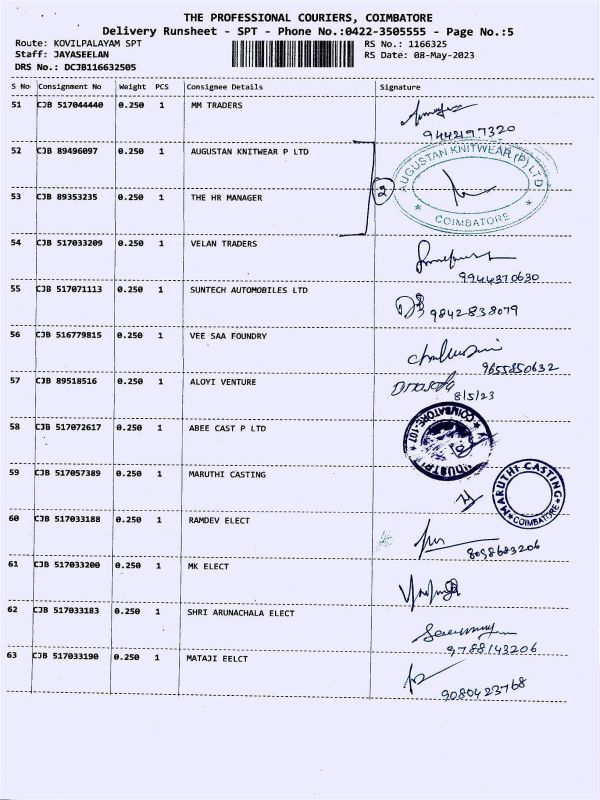 THE PROFESSIONAL COURIERS, COIMBATORE
Delivery Runsheet - SPT - Phone No.:0422-3505555 - Page No.:5
Route: KOVILPALAYAM SPT RS No.: 1166325
Staff: JAYASEELAN RS Date: 08-May-2023
DRS No.: DCJB116632505
S No Consignment No Weight PCS Consignee Details Signature
51 CJB 517044440 0.250 1 MM TRADERS
9442197320
52 CJB 89496097 0.250 1 AUGUSTAN KNITWEAR P LTD
AUGUSTAN KNITWEAR (P) LTD
COIMBATORE
2
53 CJB 89353235 0.250 1 THE HR MANAGER
54 CJB 517033209 0.250 1 VELAN TRADERS
9944370630
55 CJB 517071113 0.250 1 SUNTECH AUTOMOBILES LTD
9842838079
56 CJB 516779815 0.250 1 VEE SAA FOUNDRY
9655850632
57 CJB 89518516 0.250 1 ALOYI VENTURE
8/5/23
58 CJB 517072617 0.250 1 ABEE CAST P LTD
COIMBATORE-107
59 CJB 517057389 0.250 1 MARUTHI CASTING
MARUTHI CASTING
COIMBATORE
60 CJB 517033188 0.250 1 RAMDEV ELECT
8098683206
61 CJB 517033200 0.250 1 MK ELECT
62 CJB 517033183 0.250 1 SHRI ARUNACHALA ELECT
9788143206
63 CJB 517033190 0.250 1 MATAJI EELCT
9080423768